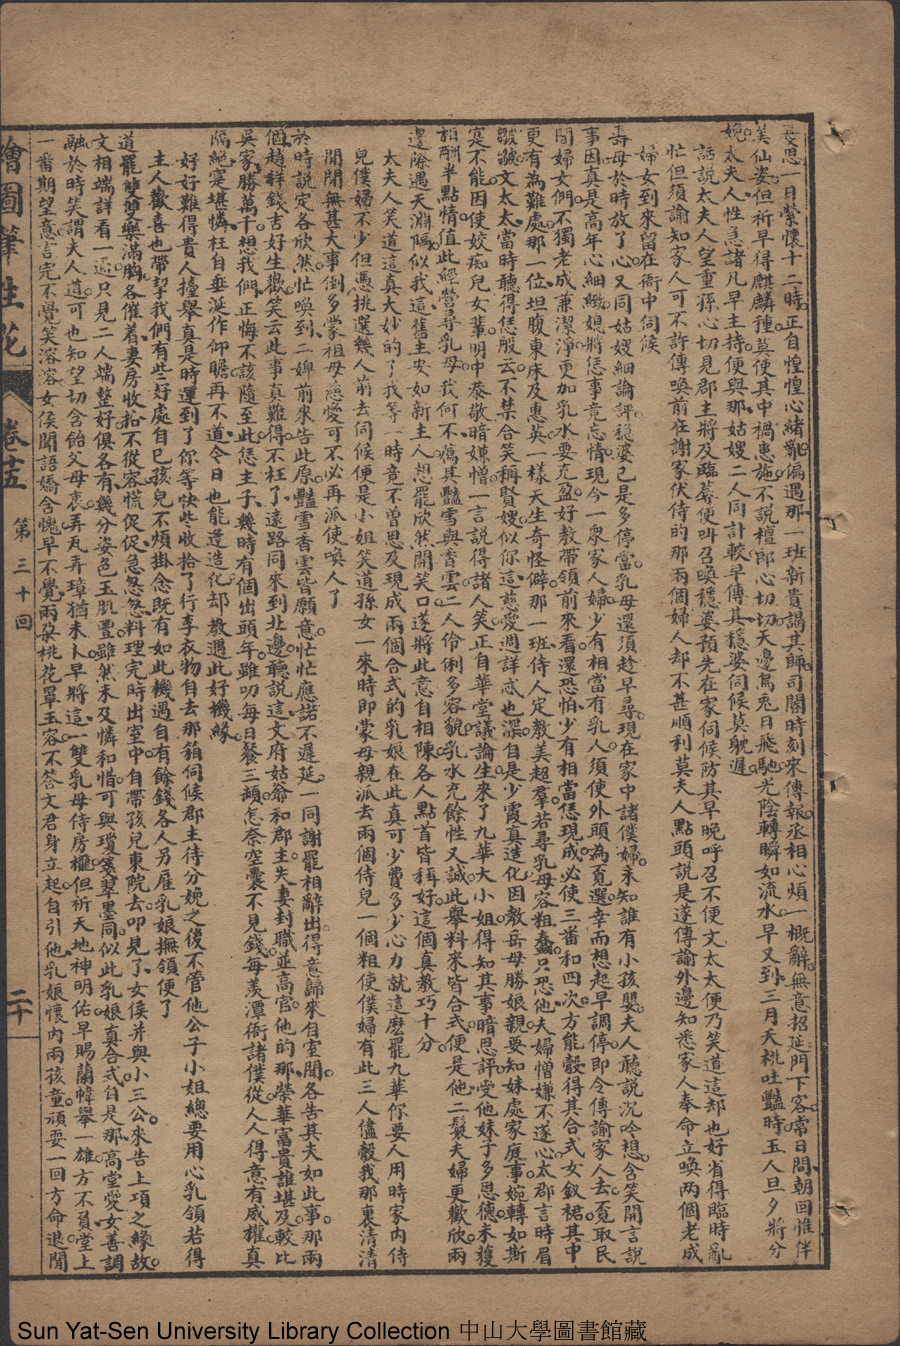 長思一日縈懷十二時正自惶惶心緒亂偏遇那一班新貴謁其師司閽時刻來傳報丞相心煩一概辭無意招延門下客常日問朝回惟伴
美仙姿但祈早得麒麟種莫使其中禍患施不說禮郎心切切天邊烏兎日飛馳光陰轉瞬如流水早又到三月夭桃吐豔時玉人旦夕將分
娩太夫人性急諸凡早主持便與那姑嫂二人同計較早傳其穩婆伺候莫躭遲
話說太夫人望重孫心切見郡主將及臨蓐便叫召喚穩婆預先在家伺候防其早晚呼召不便文太太便乃笑道這却也好省得臨時亂
忙但須諭知家人可不許傳喚前在謝家伏侍的那兩個婦人却不甚順利莫夫人點頭說是遂傳諭外邊知悉家人奉命立喚两個老成
婦女到來留在衙中伺候
壽母於時放了心又同姑嫂細論評穩婆已是多停當乳母還須趁早尋現在家中諸僕婦未知誰有小孩嬰夫人聽說沉吟想含笑開言說
事因真是高年心細緻媳將恁事竟忘情現今一衆家人婦少有相當有乳人須使外頭為覓選幸而想起早調停即令傳諭家人去覓取民
間婦女們不獨老成兼潔淨更加乳水要充盈好教帶領前來看還恐怕少有相當恁現成必使三番和四次方能彀得其合式女釵裙其中
更有為難處那一位坦腹東床及惠英一樣天生奇怪僻那一班侍人定教美超羣若尋乳母容粗蠢只恐他夫婦憎嫌不遂心太郡言時眉
皺皺文太太當時聽得恁般云不禁含笑稱賢嫂似你這慈愛週詳忒也深自是少霞真造化因教岳母勝娘親要知妹處家庭事婉轉如斯
寔不能因使姣痴兒女輩明中恭敬暗嫌憎一言說得諸人笑正自華堂議論生來了九華大小姐得知其事暗思評受他妹子多恩德未獲
相酬半點情值此經營尋乳母我何不薦其豔雪與香雲二人伶俐多容貌乳水充餘性又誠此舉料來皆合式便是他二髮夫婦更歡欣兩
邊除遇天淵隔似我這舊主安如新主人想罷欣然開笑口遂將此意自相陳各人點首皆稱好這個真教巧十分
太夫人笑道這真大妙的了我等一時竟不曾思及現成兩個合式的乳娘在此真可少費多少心力就這麽罷九華你要人用時家内侍
兒僕婦不少但憑挑選幾人前去伺候便是小姐笑道孫女一來時即蒙母親派去兩個侍兒一個粗使僕婦有此三人儘彀我那裏清清
閒閒無甚大事倒多蒙祖母慈愛可不必再派使喚人了
於時說定各欣然忙喚到二婢前來告此原豔雪香雲皆願意忙忙應諾不遲延一同謝罷相辭出得意歸來自室間各告其夫如此事那兩
個趙祥錢吉好生歡笑云此事真難得不枉了遠路同來到北邊聽說這文府姑爺和郡主夫妻封職並高官他的那榮華富貴誰堪及較比
吳家勝萬千想我們正悔不該隨至此恁主子幾時有個出頭年雖叨每日餐三頓怎奈空囊不見錢每羨潭衙諸僕從人人得意有威權真
隔絕寔堪憐枉自垂涎作仰瞻再不道今日也能逢造化却教遇此好機緣
好好難得貴人擡舉真是時運到了你等快些收拾了行李衣物自去那箱伺候郡主待分娩之後不管他公子小姐總要用心乳領若得
主人歡喜也帶挈我們有些好處自己孩兒不煩掛念既有如此機遇自有餘錢各人另雇乳娘撫領便了
道罷雙雙樂滿胸各催着妻房收拾不從容慌促促急怱怱料理完時出室中自帶孩兒東院去叩見了女侯并與小三公來告上項之緣故
文相端詳看一遍只見二人端整好俱各有幾分姿色玉肌豐雖然未及憐和惜可與瓊箋翠墨同似此乳娘真合式自是那高堂愛女善調
融於時笑謂夫人道可也知望切含飴父母衷弄瓦弄璋猶未卜早將這一雙乳母侍房櫳但祈天地神明佑早賜蘭幃舉一雄方不負堂上
一番期望意言完不覺笑溶溶女侯聞語嬌含愧早不覺兩朶桃花罩玉容不答文君身立起自引他乳娘懷内兩孩童頑耍一回方命退閒
繪圖筆生花 卷十五 第三十回 二十
Sun Yat-Sen University Library Collection 中山大學圖書館藏